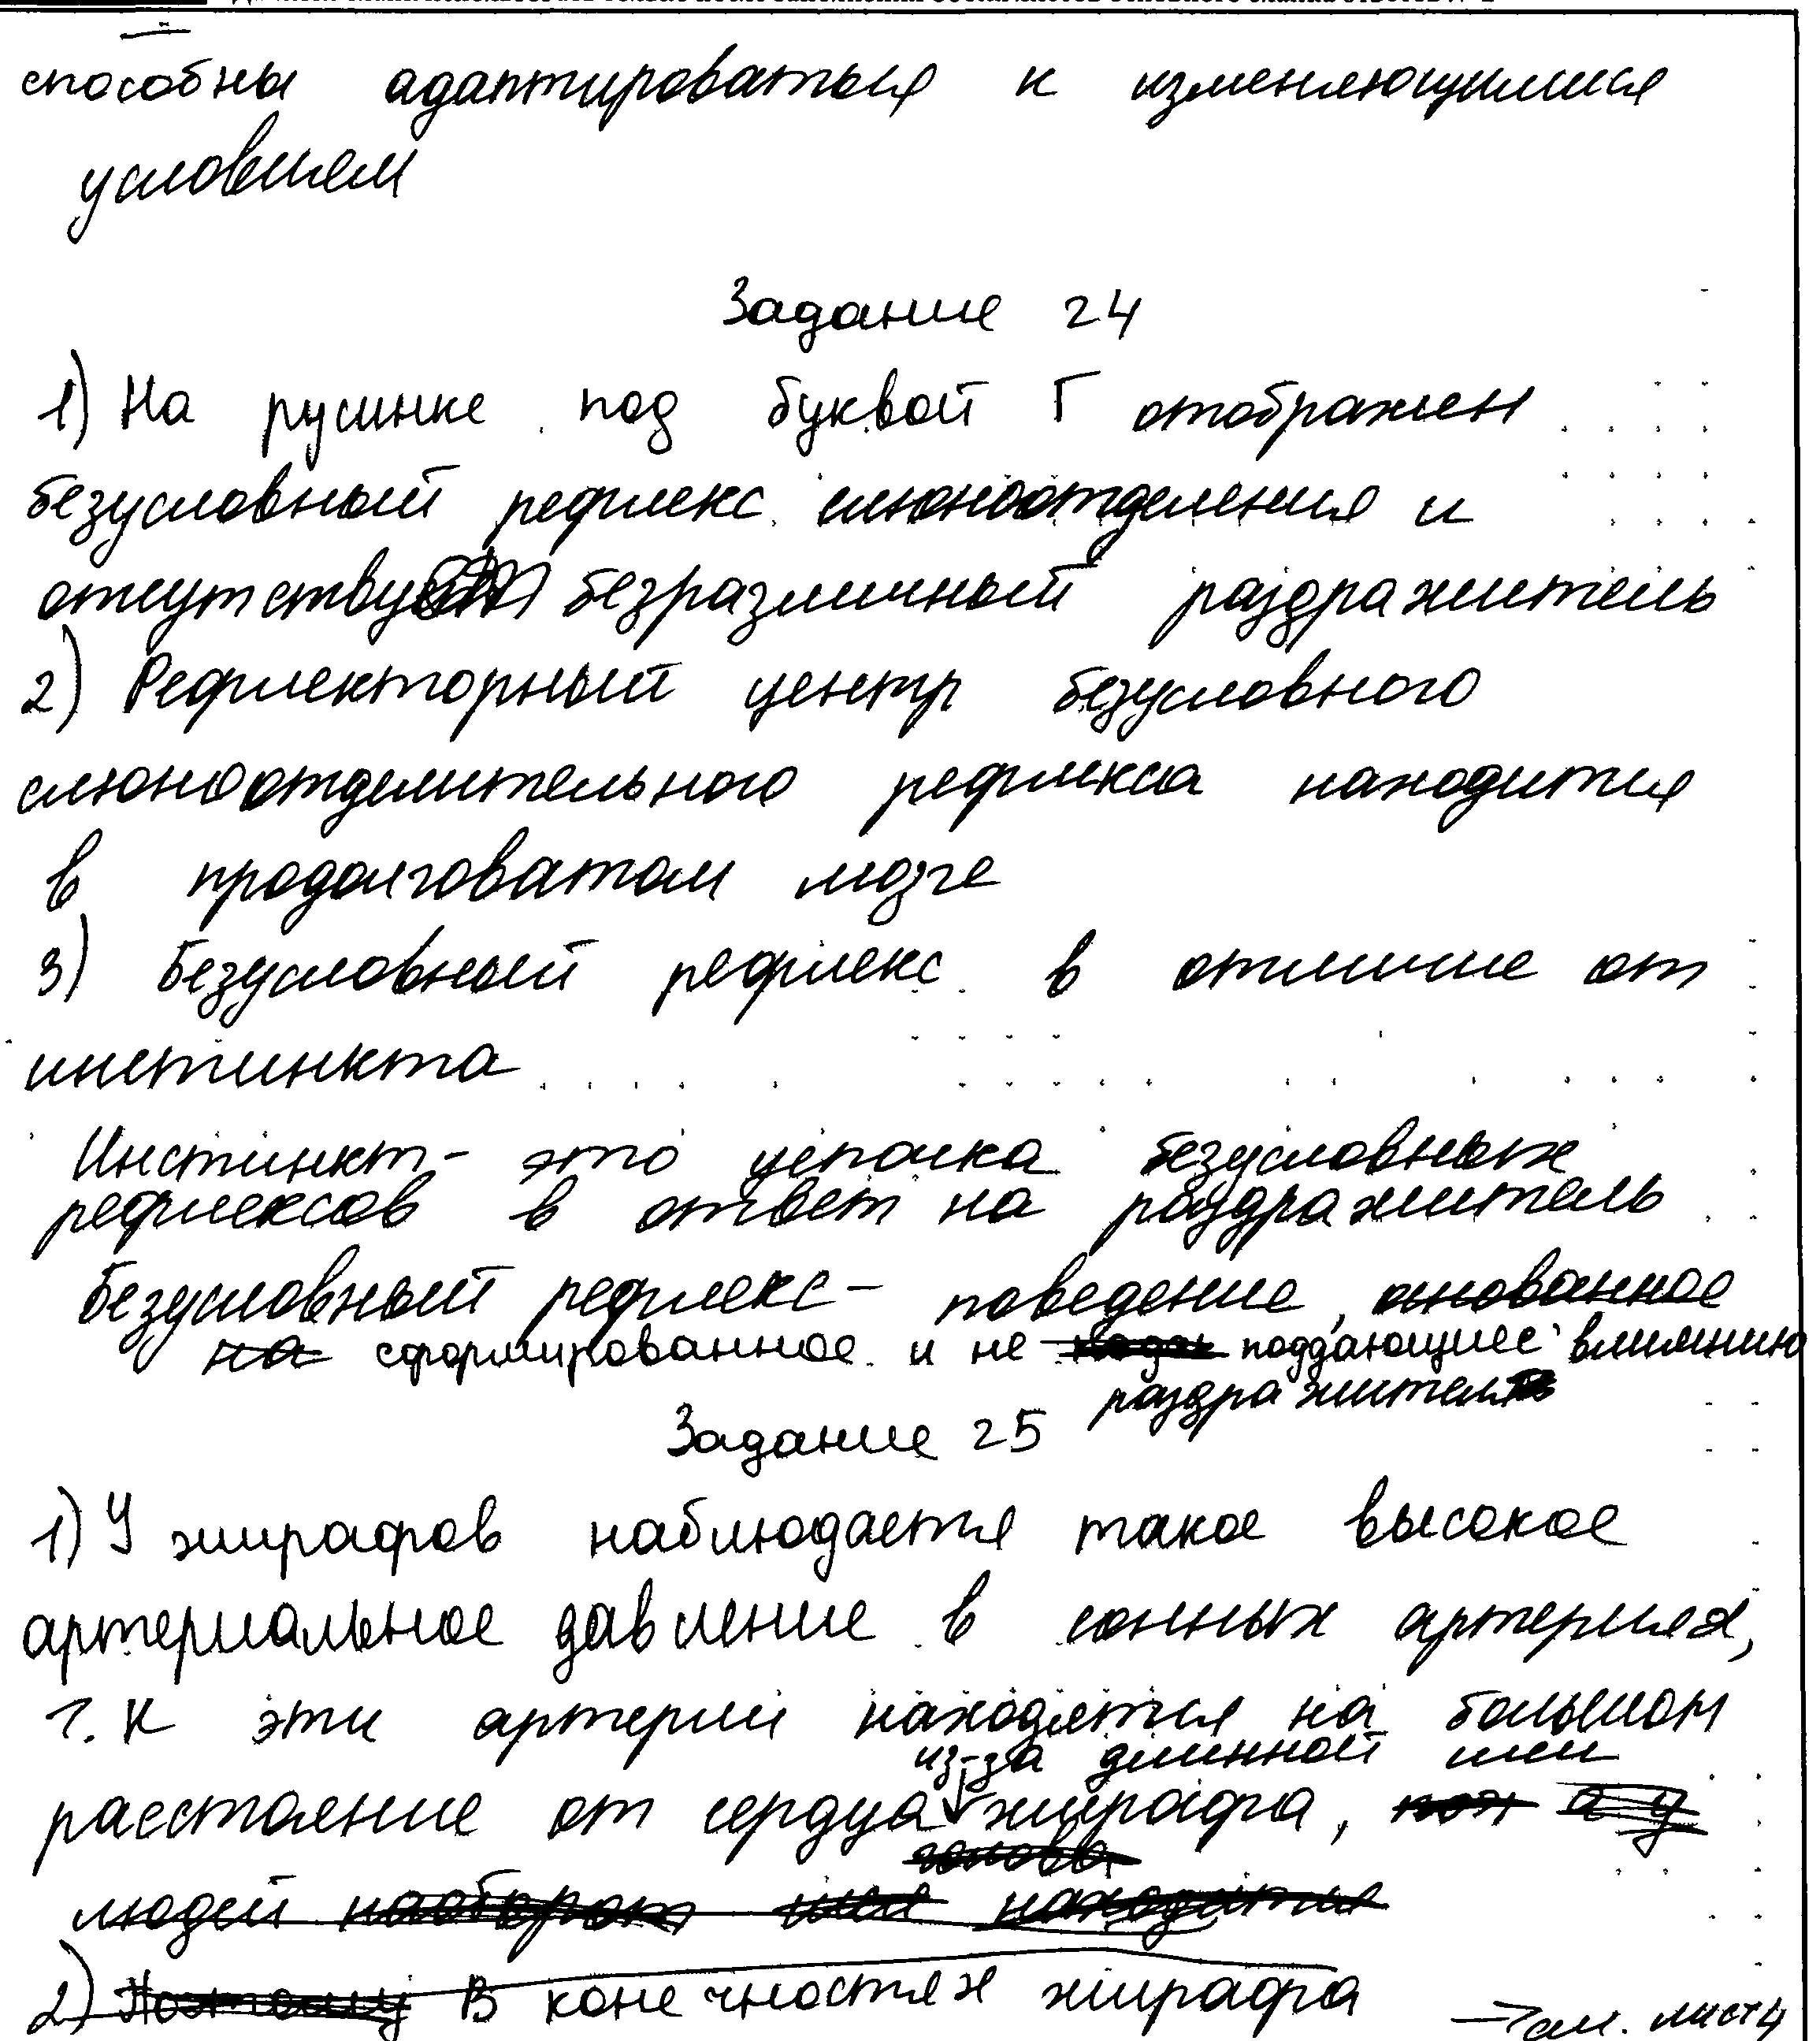 способны адаптироваться к изменяющимися
условием
Задание 24
1) На русинке под буквой Г отображен
безусловный рефлекс слюноотделения и
отсутствует безразличный раздражитель
2) Рефлекторный центр безусловного
слюноотделительного рефлекса находится
в продолговатом мозге
3) Безусловный рефлекс в отличие от
инстинкта
Инстинкт - это цепочка безусловных
рефлексов в ответ на раздражитель
Безусловный рефлекс - поведение, основанное
на сформированное и не поддающиес влиянию
раздражителя
Задание 25
1) У жирафов наблюдается такое высокое
артериальное давление в сонных артериях,
т.к эти артерии находятся на большом
из-за длинной шеи
расстояние от сердца жирафа, а у
людей наоборот шея находится
2) Поэтому В конечностях жирафа
→ см. лист 4